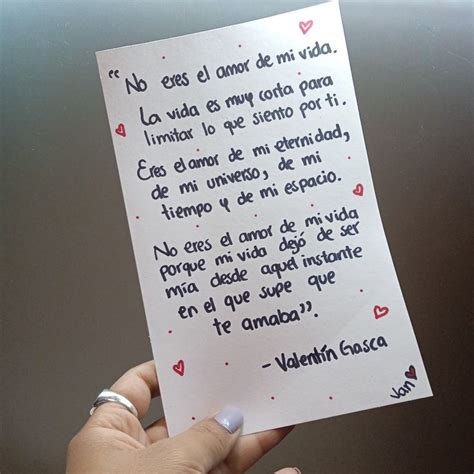 “No eres el amor de mi vida.
La vida es muy corta para
limitar lo que siento por ti.
Eres el amor de mi eternidad,
de mi universo, de mi
tiempo y de mi espacio.
No eres el amor de mi vida
porque mi vida dejó de ser
mía desde aquel instante
en el que supe que
te amaba”.
- Valentín Gasca
Van